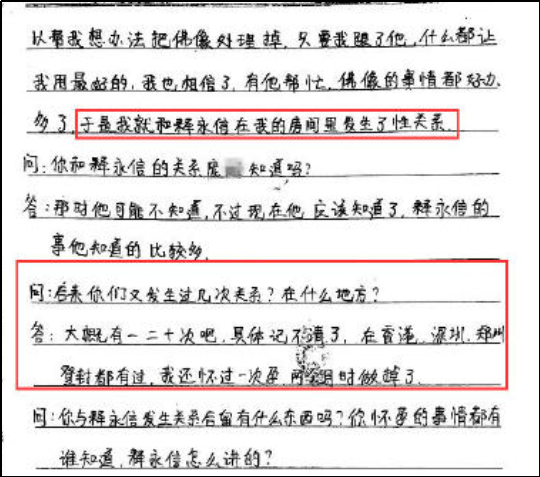 以帮我想办法把佛像处理掉，只要我跟了他，什么都让
我用最好的，我也相信了，有他帮忙，佛像的事情都好办
多了，于是我就和释永信在我的房间里发生了性关系。
问：你和释永信的关系庞 知道吗？
答：那时他可能不知道，不过现在他应该知道了，释永信的
事他知道的比较多。
问：后来你们又发生过几次关系？在什么地方？
答：大概有一二十次吧，具体记不清了，在香港、深圳、郑州
登封都有过，我还怀过一次孕，两个月时做掉了。
问：你与释永信发生关系后留有什么东西吗？你怀孕的事情都有
谁知道，释永信怎么讲的？